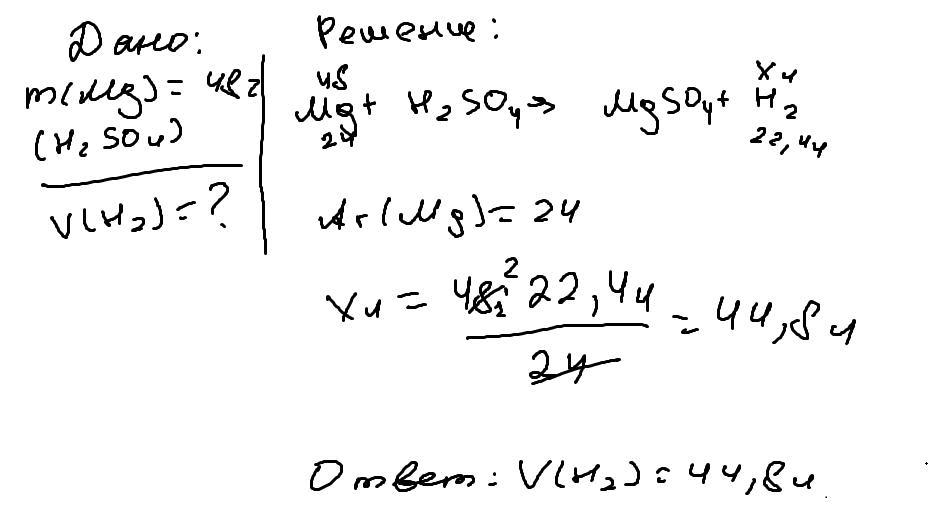 Дано:
m(Mg)= 48г
(H₂SO₄)
V(H₂)=?
Решение:
48 Xл
Mg+ H₂SO₄→ MgSO₄+ H₂
24 22,4л
Ar(Mg)=24
Xл = 48г² 22,4л = 44,8л
24
Ответ: V(H₂)= 44,8л